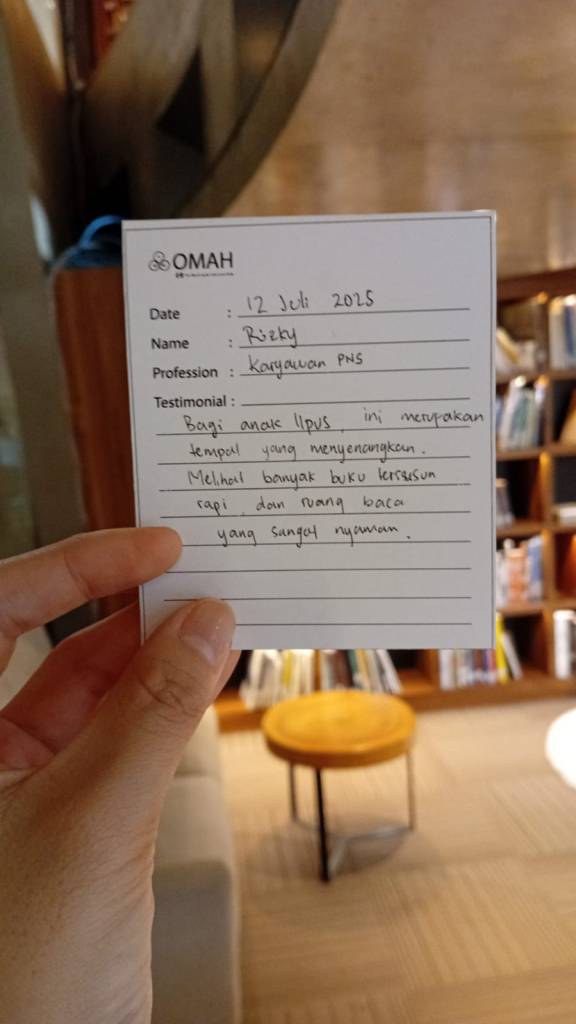 OMAH
Date : 12 Juli 2025
Name : Rizky
Profession : Karyawan PNS
Testimonial :
Bagi anak IIpus, ini merupakan
tempat yang menyenangkan.
Melihat banyak buku tersusun
rapi, dan ruang baca
yang sangat nyaman.